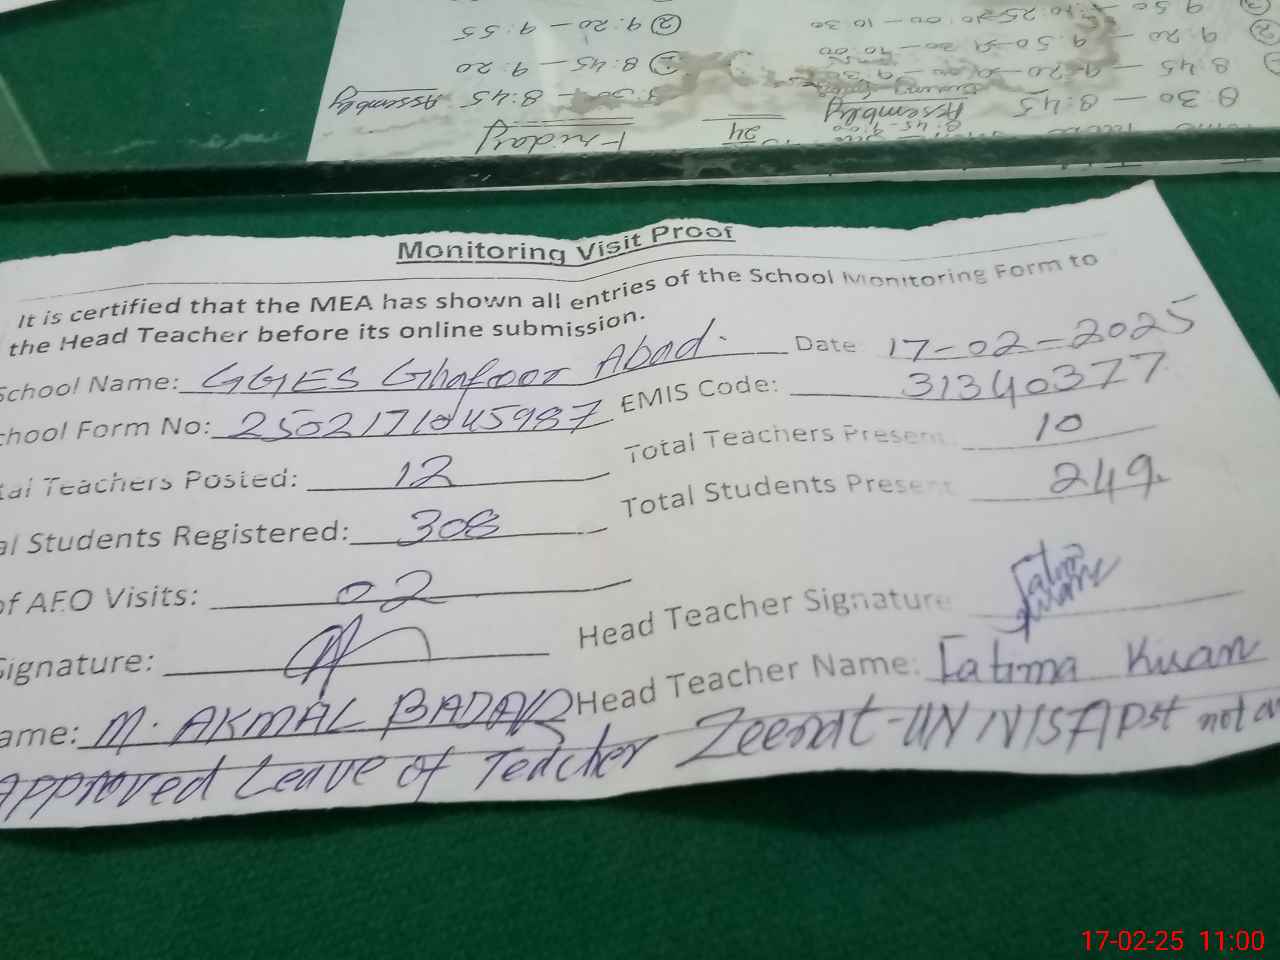 Friday
8:30 – 8:45 Assembly
① 8:45 – 9:20
② 9:20 – 9:55
Assembly
8:30 – 8:45
8:45 – 9:20
9:20 – 9:50
Monitoring Visit Proof
It is certified that the MEA has shown all entries of the School Monitoring Form to
the Head Teacher before its online submission.
School Name: GGES Ghafoor Abad. Date 17-02-2025
chool Form No: 2502171045987 EMIS Code: 31340377
tal Teachers Posted: 12 Total Teachers Present 10
al Students Registered: 308 Total Students Present 249
of AEO Visits: 02
Signature: Head Teacher Signature
ame: M. AKMAL Head Teacher Name: Fatima
Approved Leave of Teacher Zeenat-UN NISA PST not
17-02-25 11:00